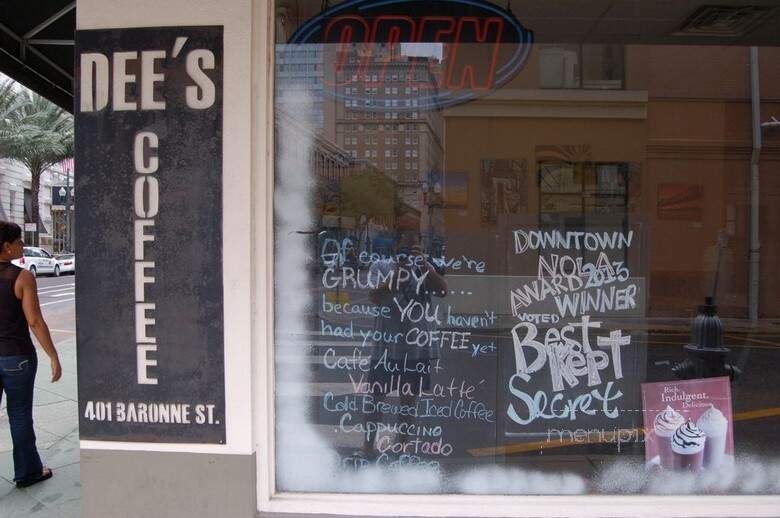 DEE'S
COFFEE
401 BARONNE ST.
OPEN
Of course we're
GRUMPY......
because YOU haven't
had your COFFEE yet
Café Au Lait
Vanilla Latte
Cold Brewed Iced Coffee
Cappuccino
Cortado
Drip Coffee
DOWNTOWN
NOLA
AWARD 2013
WINNER
VOTED
Best
Kept
Secret
Rich.
Indulgent.
Delicious.
menupix